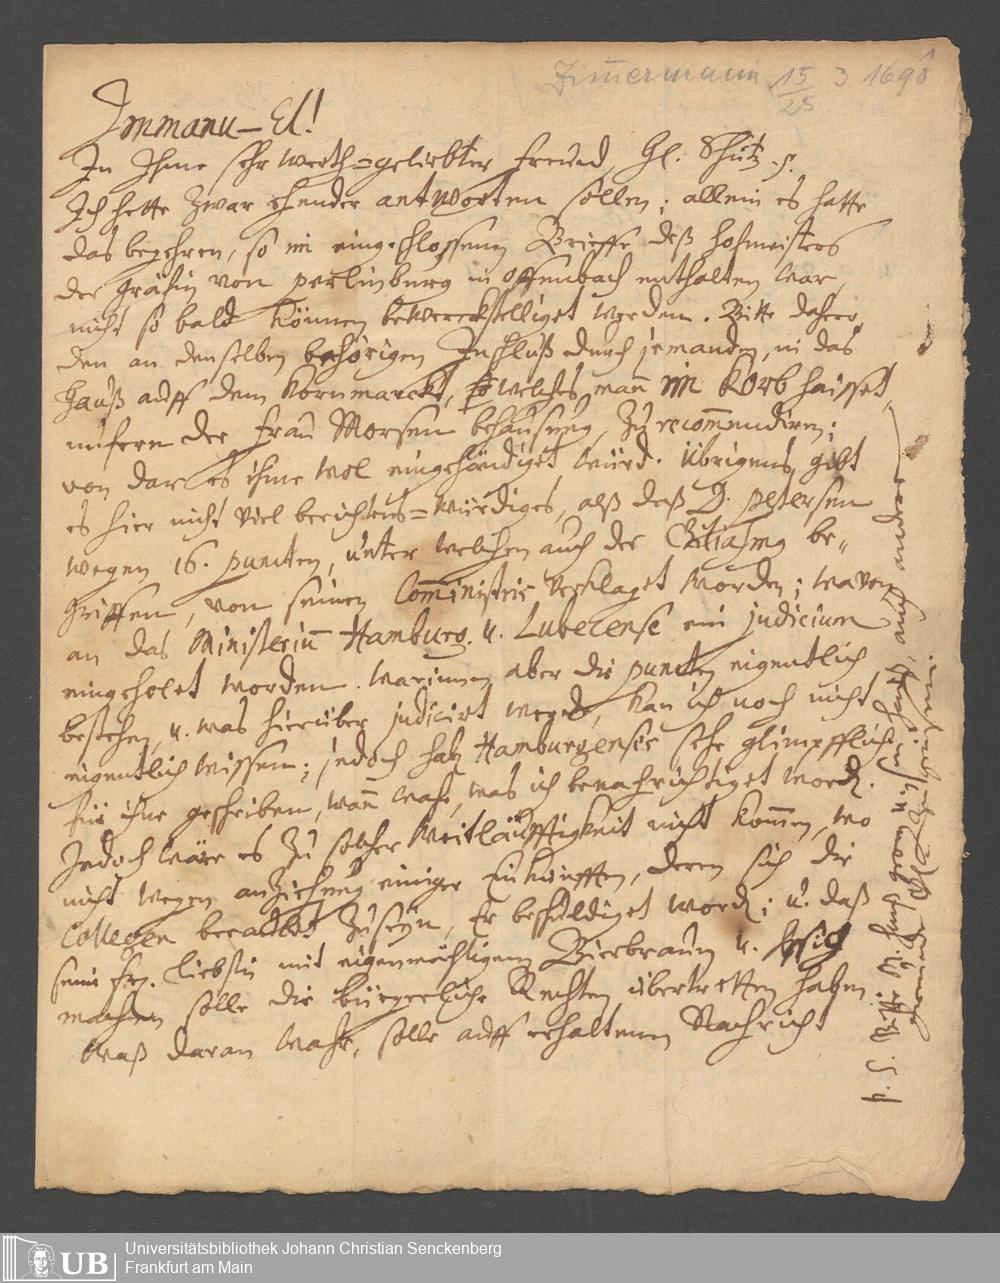 Zimmermann 15/25 3 1690
1
Immanu-El!
In Ihme sehr werth=geliebter Freund, Hl. Schütz. p.
Ich hette zwar ehender antworten sollen; allein es hatte
das begehren, so im eingeschlossenen Brieffe deß Hofmeisters
der Gräfin von perlinburg in Offenbach enthalten war,
nicht so bald können bewerckstelliget werden. Bitte dahero
den an denselben behörigen Inschluß durch jemanden, in das
Hauß auff dem Kornmarckt, welches man im Korb haisset,
unfern der Frau Morsen behausung, zu recommendiren;
von dar es ihme wol eingehändiget würd. Übrigens, gibt
es hier nicht viel berichtens=würdiges, alß daß D. petersen
wegen 16. puncten, unter welchen auch der Chiliasmq be„
griffen, von seinen Comministris verklaget worden; waren
an das Ministeriū Hamburg. u. Lubecense ein judicium
eingeholet worden. Warinnen aber die puncten eigentlich
bestehen, u. was hierüber judicirt worden, kan ich noch nicht
eigentlich wissen; jedoch hab Hamburgensis sehr glimpfflich
für ihne geschriben, wann wahr, was ich benachrichtiget word.
Jedoch wäre es zu solcher Weitläufftigkeit nicht kommen, wo
nicht wegen anziehung einiger Einkünfften, deren sich die
Collegen beraubt zu seyn, Er beschuldiget word; u. daß
seine Fr. liebstin mit eigenmächtigem Bierbrauen u.
machen solle die bürgerliche Rechten übertretten haben.
Waß daran wahr, solle auff erhaltenen Nachricht
P. S. Bitte, auch andere